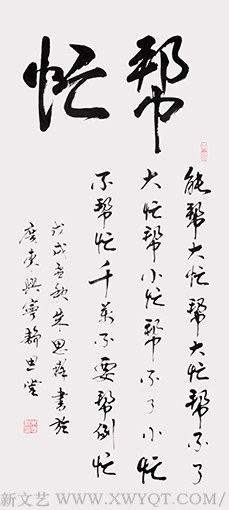 帮忙
能帮大忙帮大忙帮不了
大忙帮小忙帮不了小忙
不帮忙千万不要帮倒忙
戊戌孟秋朱思辉书于
广东兴宁静思堂
新文艺 WWW.XWYQT.COM/